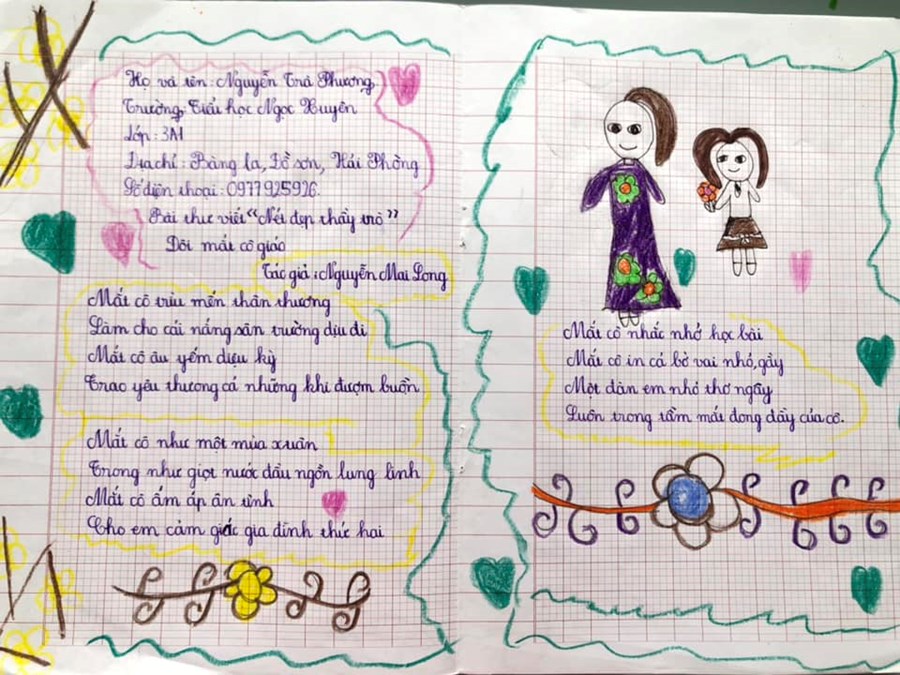 Họ và tên: Nguyễn Trà Phương
Trường: Tiểu học Ngọc Xuyên
Lớp: 3A1
Địa chỉ: Bàng la, Đồ sơn, Hải Phòng
Số điện thoại: 0977925926.
Bài thơ viết "Nét đẹp thầy trò"
Đôi mắt cô giáo
Tác giả: Nguyễn Mai Long
Mắt cô trìu mến thân thương
Làm cho cái nắng sân trường dịu đi
Mắt cô âu yếm diệu kỳ
Trao yêu thương cả những khi đượm buồn
Mắt cô như một mùa xuân
Trong như giọt nước đầu ngồn lung linh
Mắt cô ấm áp ân tình
Cho em cảm giác gia đình thứ hai
Mắt cô nhắc nhở học bài
Mắt cô in cả bờ vai nhỏ, gầy
Một đàn em nhỏ thơ ngây
Luôn trong tầm mắt đong đầy của cô.